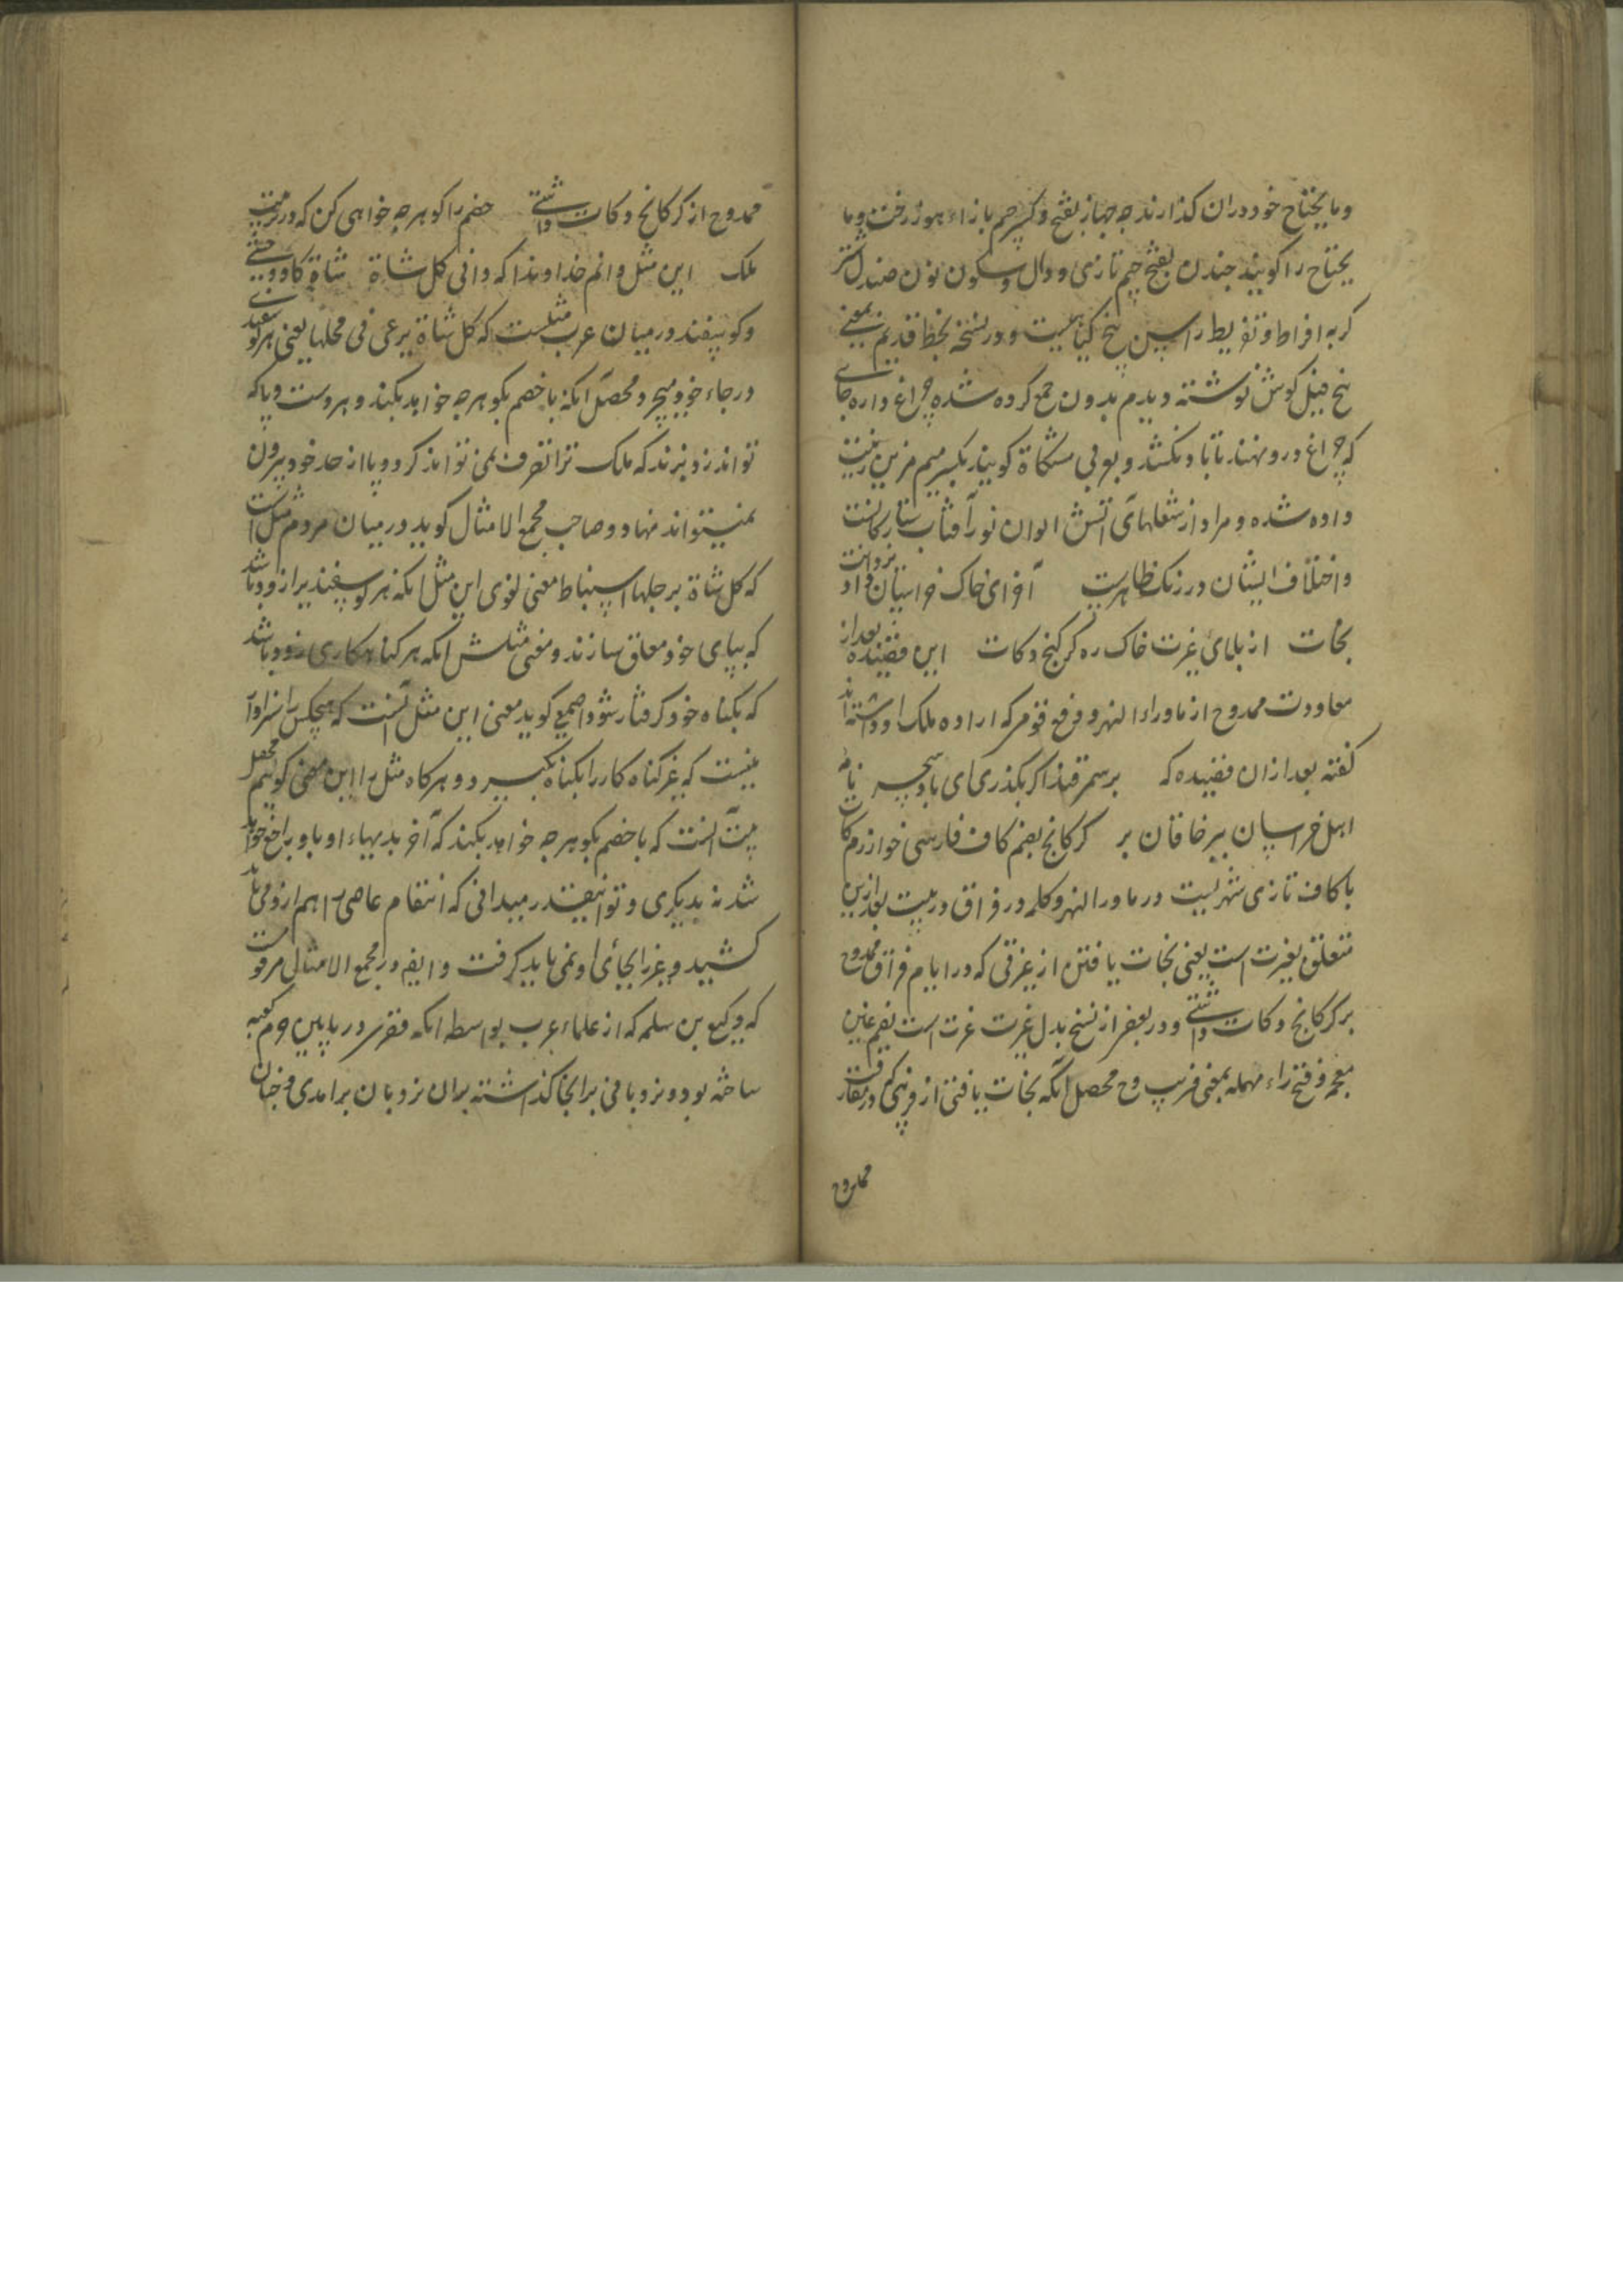 وما یحتاج خود دران کذارند چه جهاز بفتح و کسر جیم بازاء هوز رخت و ما
یحتاج را کویند چندن بفتح جیم تازی و دال و سکون نون صندل شتر
کربه افراط و تفریط راسن پیخ کیاهیست و در نسخهٔ بخط قدیم بمعنی
پیخ فیل کوش نوشته دیدم بدون جمع کرده شده چراغ واره جای
که چراغ درو نهند تا باد نکشد و بعربی مشکاة کویند بکسر میم مزین زینت
داده شده و مراد از شعلهای آتش الوان نور آفتاب ستارکانست
و اختلاف ایشان در رنک ظاهرست آخر ای خاک خراسان داد یزدانت
نجات از بلای غیرت خاک ره کرکنج و کات این قصیده بعد از
معاودت ممدوح از ماوراء النهر و فرع قومی که اراده ملک او داشته اند
کفته بعد ازان قصیده که بر سمرقند اکر بکذری ای باد سحر نامه
اهل خراسان ببر خاقان بر کرکانج بضم کاف فارسی خوارزم کات
با کاف تازی شهریست در ماورا النهر و کلمه در فراق در بیت بعد ازین
متعلق بغیرت است یعنی نجات یافتن از غیرتی که در ایام فراق ممدوح
بر کرکانج و کات داشتی و در بعضی از نسخ بدل غیرت غرت است بضم غین
معجمه و فتح راء مهمله بمعنی فریب و ح محصل آنکه نجات یافتی از فریبی که در مفارقت
ممدوح
ممدوح از کرکانج و کات داشتی خصم را کو هر چه خواهی کن که در ترتیب
ملک این مثل دانم خداوندا که دانی کل شاة شاة کاو وحشی
و کوسپفند در میان عرب مثلست که کل شاة یرعی فی محلها یعنی هر کوسفندی
در جاء خود میچرد و محصل آنکه با خصم بکو هر چه خواهد بکند و هر دست و پا که
تواند زد بزند که ملک ترا تصرف نمی تواند کرد و پا از حد خود بیرون
نمیتواند نهاد و صاحب مجمع الامثال کوید در میان مردم مثل است
که کل شاة برجلها استنباط معنی لغوی این مثل آنکه هر کوسپفندیرا زود باشد
که بپای خود معلق سازند و معنی مثلش آنکه هر کناهکاری زود باشد
که بکناه خود کرفتار شود و اصمعی کوید معنی این مثل آنست که هیچکس را سزاوار
نیست که غیر کناه کار را بکناه بکیرد و هر کاه مثل را این معنی کوییم محصل
بیت آنست که با خصم بکو هر چه خواهد بکند که آخر بد بهاء او باو راجع خواهد
شد نه بدیکری و تو نیز میدانی که انتقام عاصی را هم ازو می باید
کشید و غیر را بجای او نمی باید کرفت و ایضا در مجمع الامثال مرقومست
که وکیع بن سلمه که از علماء عرب بواسطه آنکه قصری در پایین حرم کعبه
ساخته بود و نردبانی برانجا کذاشته بران نردبان برامدی و چنان